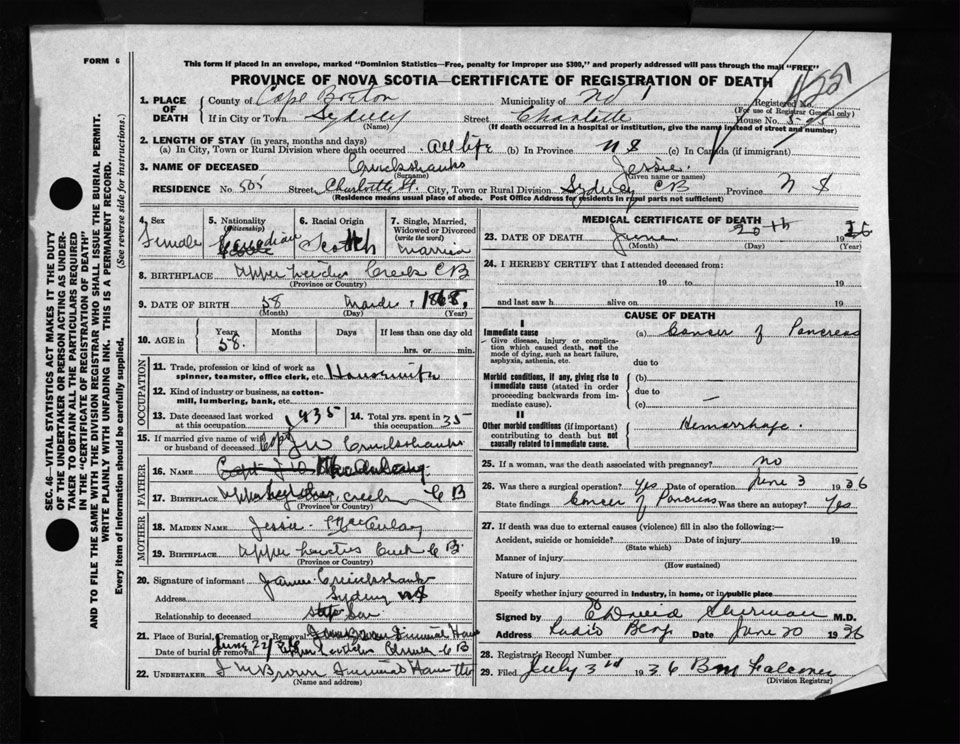 FORM 6
This form if placed in an envelope, marked "Dominion Statistics—Free, penalty for improper use $300," and properly addressed will pass through the mail "FREE"
PROVINCE OF NOVA SCOTIA—CERTIFICATE OF REGISTRATION OF DEATH
1. PLACE OF DEATH { County of Cape Breton Municipality of No 1 Registered No.
(For use of Registrar General only)
If in City or Town Sydney Street Charlotte House No. 505
(Name) (If death occurred in a hospital or institution, give the name instead of street and number)
2. LENGTH OF STAY (in years, months and days)
(a) In City, Town or Rural Division where death occurred All life (b) In Province N S (c) In Canada (if immigrant)
3. NAME OF DECEASED Cruickshanks Jessie
(Surname) (Given name or names)
RESIDENCE No. 505 Street Charlotte St. City, Town or Rural Division Sydney CB Province N S
(Residence means usual place of abode. Post Office Address for residents in rural parts not sufficient)
4. Sex 5. Nationality (Citizenship) 6. Racial Origin 7. Single, Married, Widowed or Divorced (write the word)
Female Canadian Scotch Married
8. BIRTHPLACE Upper Creek CB
(Province or Country)
9. DATE OF BIRTH 58 1868
(Month) (Day) (Year)
10. AGE in { Years Months Days If less than one day old
58 hrs. or min.
OCCUPATION
11. Trade, profession or kind of work as spinner, teamster, office clerk, etc. Housewife
12. Kind of industry or business, as cotton-mill, lumbering, bank, etc.
13. Date deceased last worked at this occupation 1935 14. Total yrs. spent in this occupation 35
15. If married give name of wife or husband of deceased Capt J W Cruickshanks
FATHER
16. NAME
17. BIRTHPLACE Upper C B
(Province or Country)
MOTHER
18. MAIDEN NAME Jessie McAulay
19. BIRTHPLACE Upper C B.
(Province or Country)
20. Signature of informant James Cruickshank
Address Sydney NS
Relationship to deceased step son
21. Place of Burial, Cremation or Removal Funeral Home
Date of burial or removal June 22/36 C B
22. UNDERTAKER Brown Funeral
(Name and address)
MEDICAL CERTIFICATE OF DEATH
23. DATE OF DEATH June 20th 1936
(Month) (Day) (Year)
24. I HEREBY CERTIFY that I attended deceased from:
19 to 19
and last saw h alive on 19
CAUSE OF DEATH
I
Immediate cause (a) Cancer of Pancreas
— Give disease, injury or complication which caused death, not the mode of dying, such as heart failure, asphyxia, asthenia, etc.
due to
Morbid conditions, if any, giving rise to immediate cause (stated in order proceeding backwards from immediate cause).
(b)
due to
(c) —
II
Other morbid conditions (if important) contributing to death but not causally related to immediate cause.
Hemorrhage.
25. If a woman, was the death associated with pregnancy? no
26. Was there a surgical operation? Yes Date of operation June 3 1936
State findings Cancer of Pancreas Was there an autopsy? Yes
27. If death was due to external causes (violence) fill in also the following:—
Accident, suicide or homicide? Date of injury 19
(State which)
Manner of injury
(How sustained)
Nature of injury
Specify whether injury occurred in industry, in home, or in public place
Signed by David Sherman M.D.
Address Date June 20 1936
28. Registrar's Record Number
29. Filed July 3rd 1936 B M Falconer
(Division Registrar)
SEC. 46—VITAL STATISTICS ACT MAKES IT THE DUTY
OF THE UNDERTAKER OR PERSON ACTING AS UNDER-
TAKER TO OBTAIN ALL THE PARTICULARS REQUIRED
IN THE "CERTIFICATE OF REGISTRATION OF DEATH"
AND TO FILE THE SAME WITH THE DIVISION REGISTRAR WHO SHALL ISSUE THE BURIAL PERMIT.
WRITE PLAINLY WITH UNFADING INK. THIS IS A PERMANENT RECORD.
Every item of information should be carefully supplied. (See reverse side for instructions.)